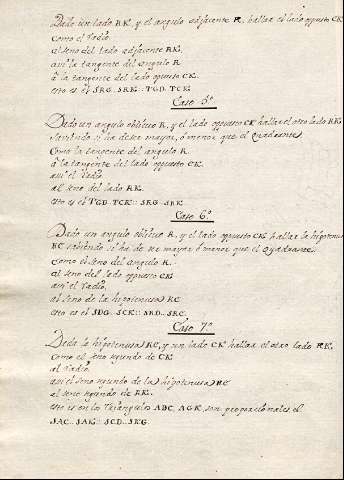 Dado un lado RK y el angulo adjacente R. hallar el lado opuesto CK
Como el radio.
al seno del lado adjacente RK.
asi la tangente del angulo R
â la tangente del lado opuesto CK.
esto es el SRG. SRK:: TGD. TCK.
Caso 5º
Dado un angulo obliquo R, y el lado oppuesto CK hallar el otro lado RK,
sabiendo si ha de ser mayor, ó menor que el Quadrante.
Como la tangente del angulo R.
â la tangente del lado oppuesto CK.
asi el radio.
al seno del lado RK.
esto es el TGD. TCK:: SRG. SRK.
Caso 6º
Dado un angulo obliquo R, y el lado oppuesto CK, hallar la hipotenusa
RC sabiendo si ha de ser mayor ô menor que el Quadrante.
Como el seno del angulo R.
al seno del lado oppuesto CK
asi el radio.
al seno de la hipotenusa RC
esto es el SDG. SCK:: SRD. SRC.
Caso 7º
Dada la hipotenusa RC, y un lado CK hallar el otro lado RK.
Como el seno segundo de CK
al radio.
asi el seno segundo de la hipotenusa RC
al seno segundo de RK.
esto es en los triangulos ABC, AGK, son proporcionales el
SAC. SAK:: SCD. SKG.